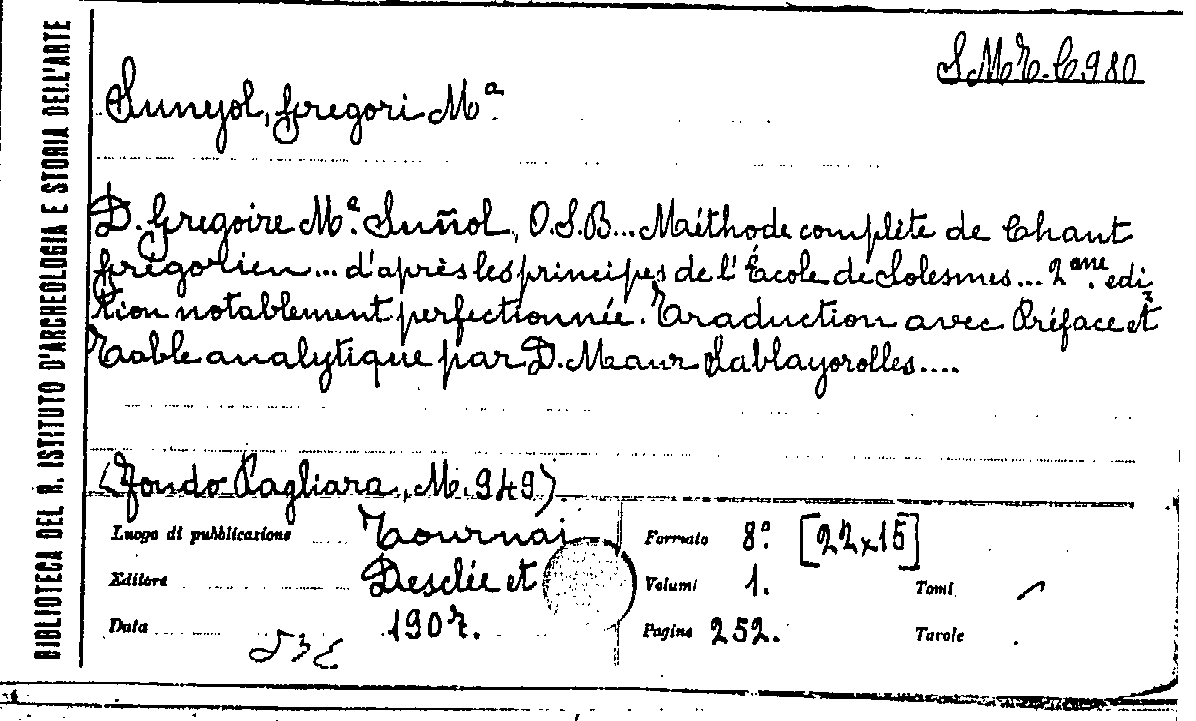 BIBLIOTECA DEL R. ISTITUTO D'ARCHEOLOGIA E STORIA DELL'ARTE
S.M.E.C 980
Sunyol, Gregori Mª.
D. Gregoire Mª. Suñol, O.S.B... Méthode complète de Chant
grégorien... d'après les principes de l'École de Solesmes... 2ème. edi
tion notablement perfectionnée. Traduction avec Préface et
Table analytique par D. Maur Sablayorolles....
(Fondo Pagliara, M. 949)
Luogo di pubblicazione Tournai Formato 8º. [22x15]
Editore Desclée et Volumi 1. Tomi /
Data 1907. Pagine 252. Tavole